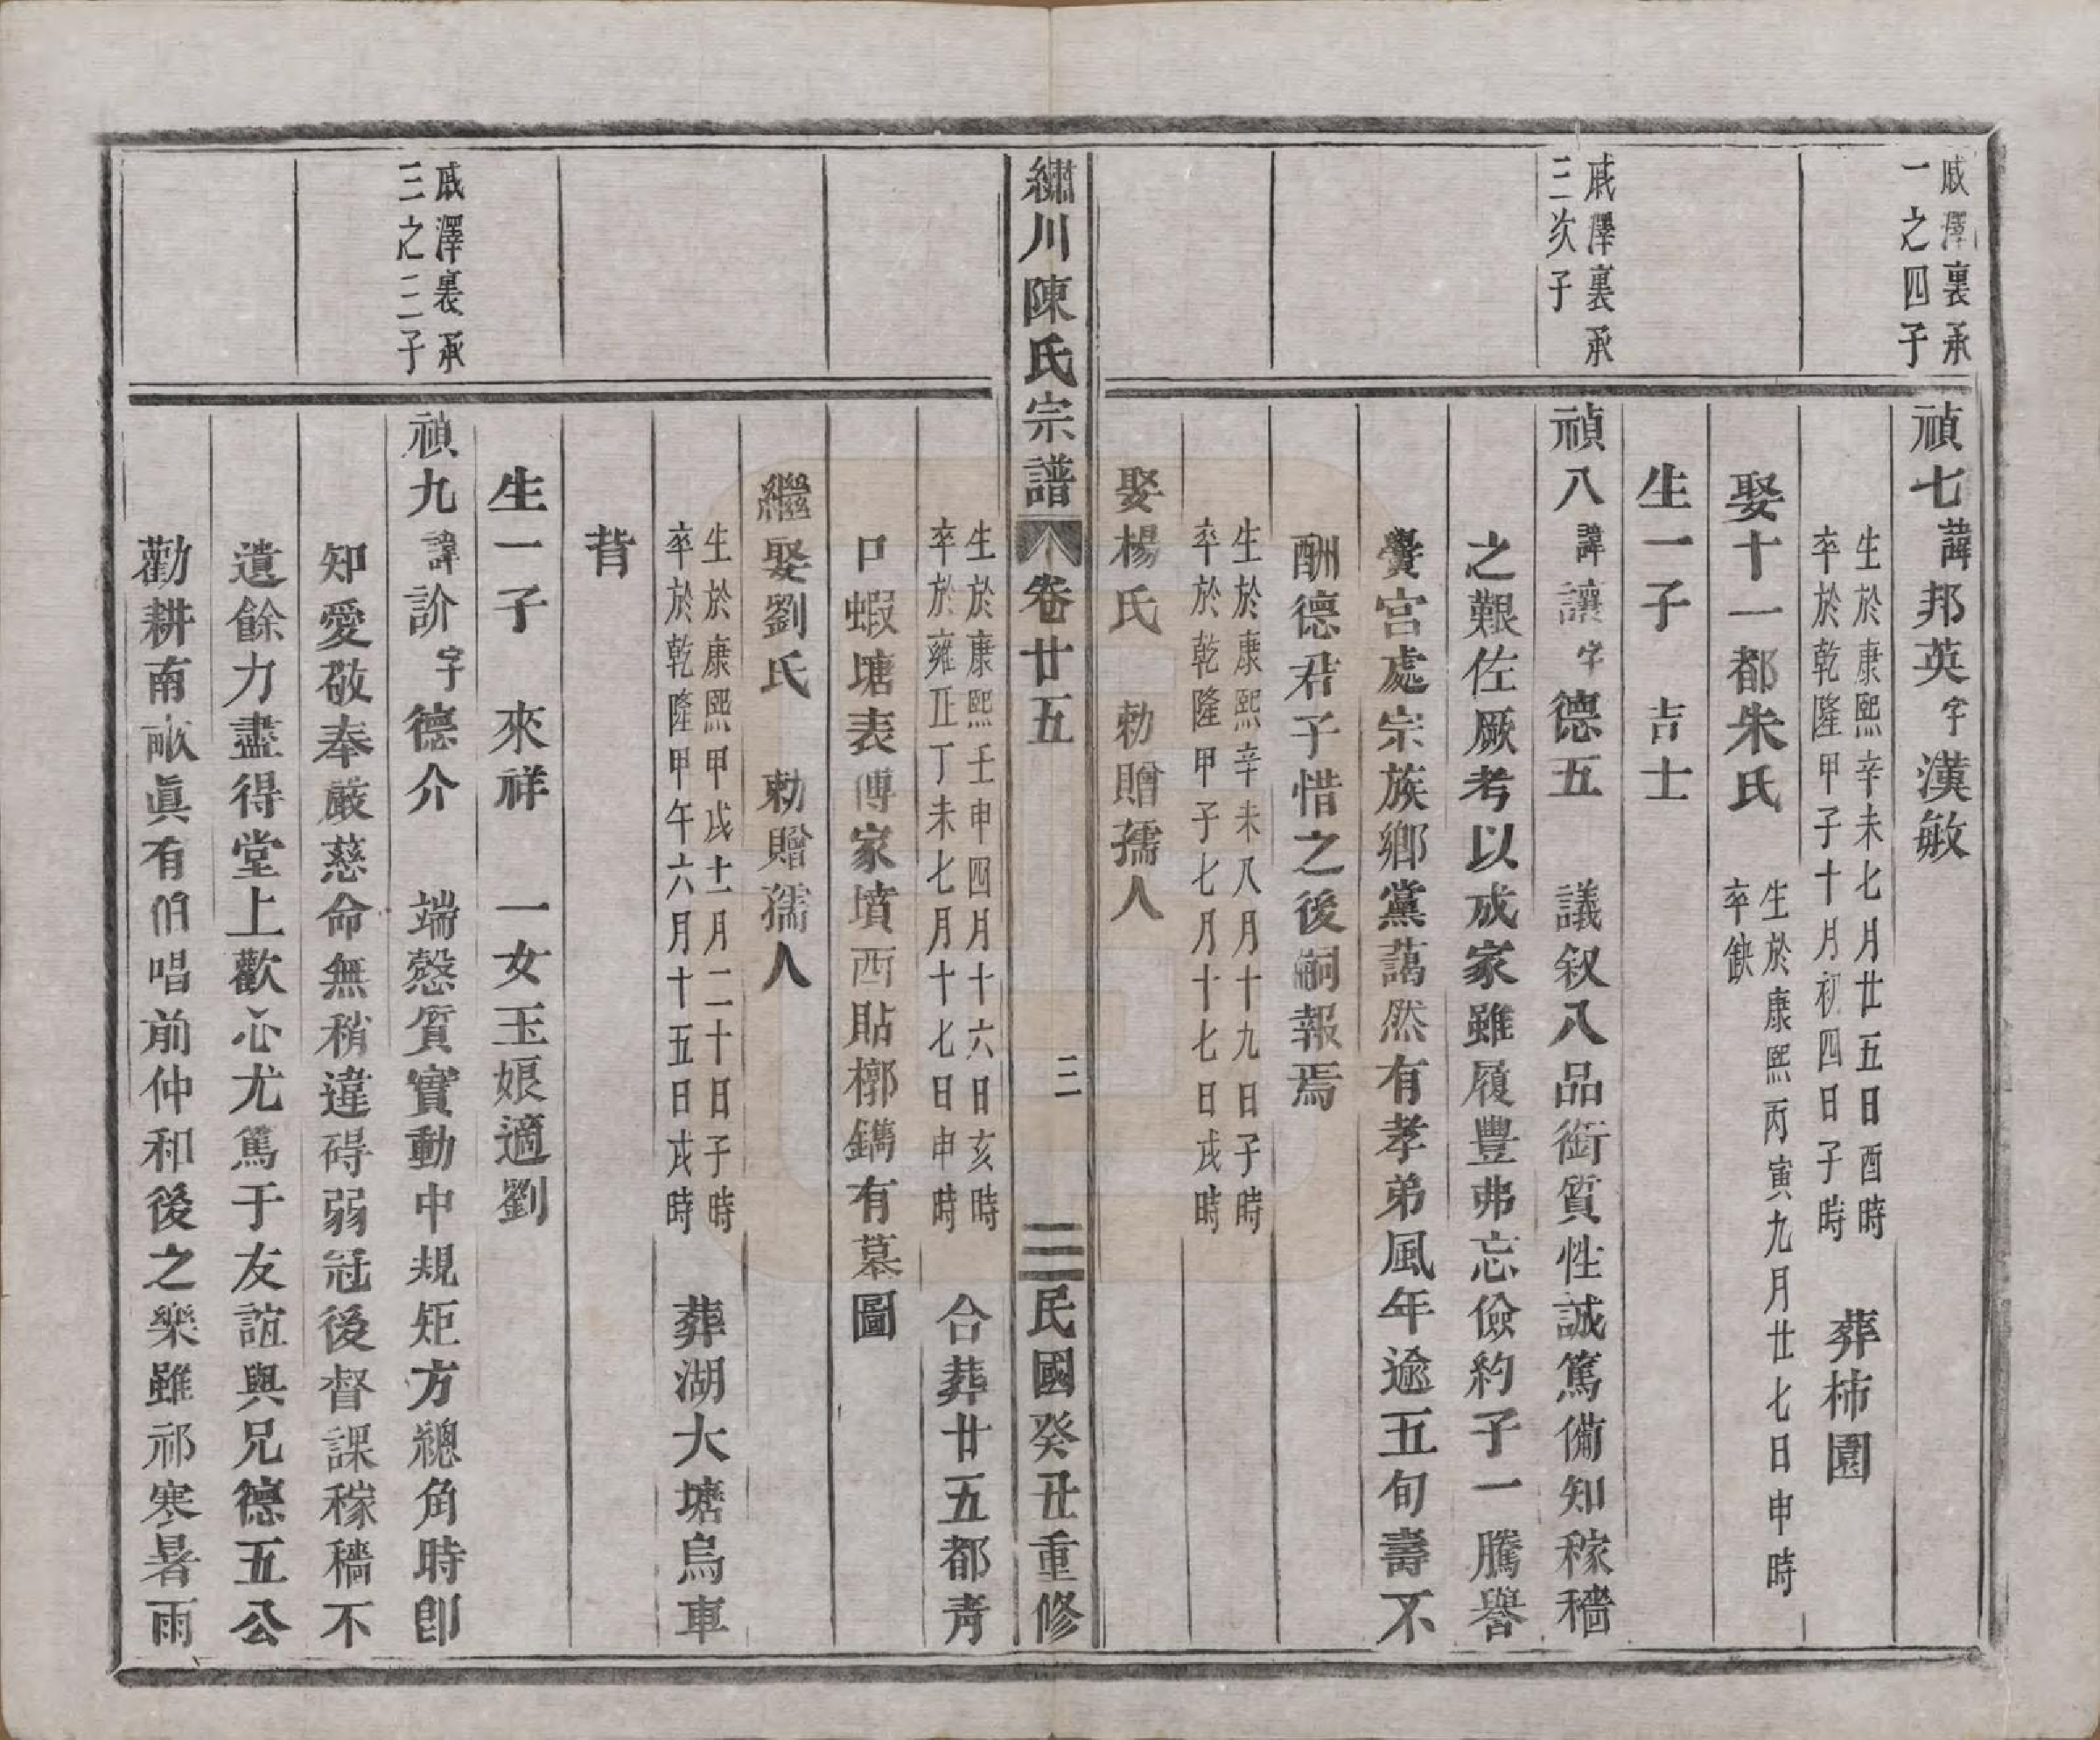 戚澤裏承
一之四子
禎七諱邦英字漢敏
生於康熙辛未七月廿五日酉時
卒於乾隆甲子十月初四日子時
葬柿園
娶十一都朱氏
生於康熙丙寅九月廿七日申時
卒缺
生一子 吉士
戚澤裏承
三次子
禎八諱讓字德五 議叙八品銜質性誠篤備知稼穡
之艱佐厥考以成家雖履豐弗忘儉約子一騰譽
黌宮處宗族鄉黨藹然有孝弟風年逾五旬壽不
酬德君子惜之後嗣報焉
生於康熙辛未八月十九日子時
卒於乾隆甲子七月十七日戌時
娶楊氏 勅贈孺人
繡川陳氏宗譜 卷廿五 三 民國癸丑重修
生於康熙壬申四月十六日亥時
卒於雍正丁未七月十七日申時
合葬廿五都青
口蝦塘表傅家墳西貼槨鐫有墓圖
繼娶劉氏 勅贈孺人
生於康熙甲戌十一月二十日子時
卒於乾隆甲午六月十五日戌時
葬湖大塘烏車
背
生一子 來祥 一女玉娘適劉
戚澤裏承
三之三子
禎九諱訡字德介 端慤質實動中規矩方總角時卽
知愛敬奉嚴慈命無稍違碍弱冠後督課稼穡不
遺餘力盡得堂上歡心尤篤于友誼與兄德五公
勸耕南畝眞有伯唱前仲和後之樂雖祁寒暑雨